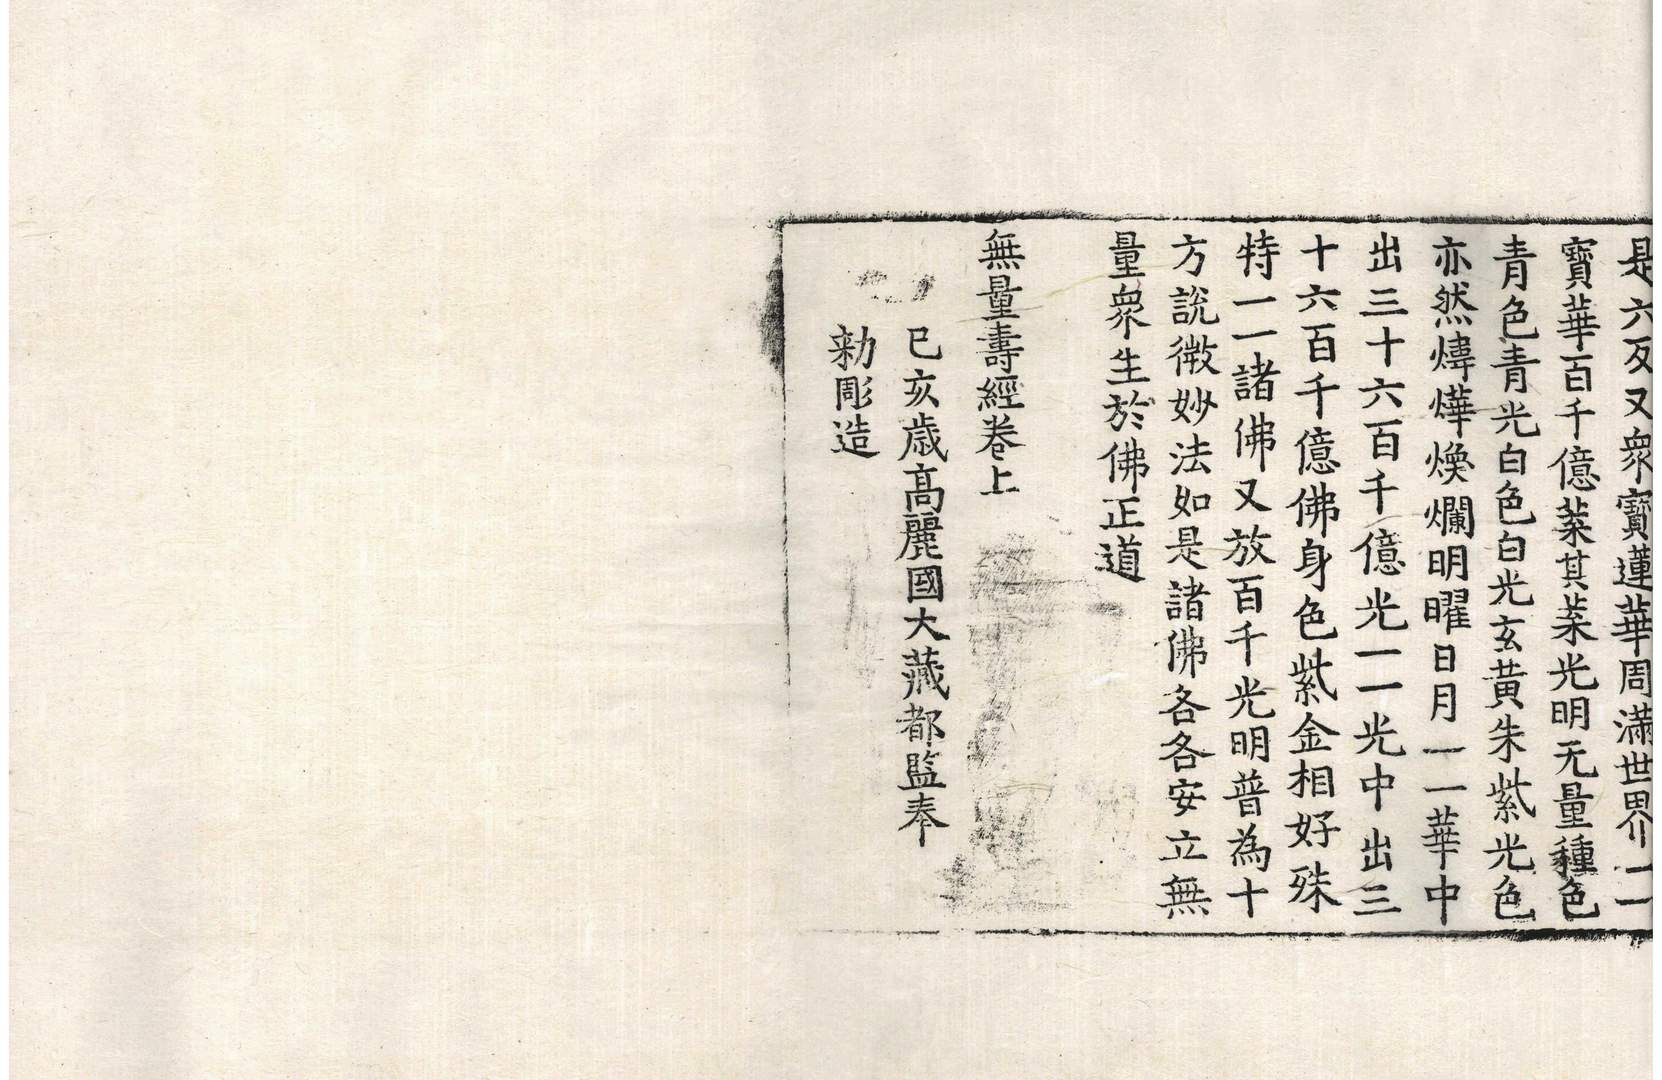 是六反又衆寶蓮華周滿世界一一
寶華百千億葉其葉光明无量種色
青色青光白色白光玄黃朱紫光色
亦然煒燁煥爛明曜日月一一華中
出三十六百千億光一一光中出三
十六百千億佛身色紫金相好殊
特一一諸佛又放百千光明普為十
方說微妙法如是諸佛各各安立無
量衆生於佛正道
無量壽經卷上
己亥歲高麗國大藏都監奉
勅彫造